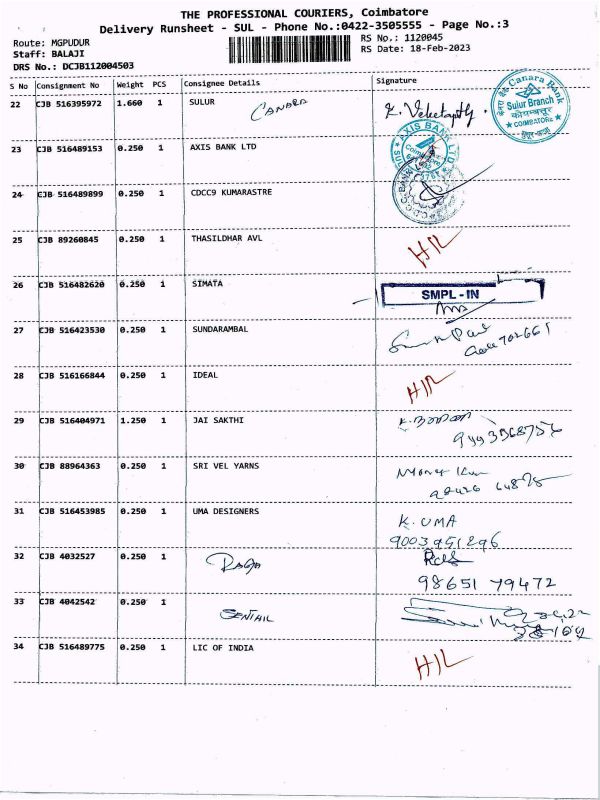 THE PROFESSIONAL COURIERS, Coimbatore
Delivery Runsheet - SUL - Phone No.:0422-3505555 - Page No.:3
Route: MGPUDUR RS No.: 1120045
Staff: BALAJI RS Date: 18-Feb-2023
DRS No.: DCJB112004503
S No Consignment No Weight PCS Consignee Details Signature
22 CJB 516395972 1.660 1 SULUR CANARA
Canara Bank
Sulur Branch
COIMBATORE
23 CJB 516489153 0.250 1 AXIS BANK LTD
AXIS BANK LTD
24 CJB 516489899 0.250 1 CDCC9 KUMARASTRE
25 CJB 89260845 0.250 1 THASILDHAR AVL H/L
26 CJB 516482620 0.250 1 SIMATA SMPL-IN
27 CJB 516423530 0.250 1 SUNDARAMBAL
28 CJB 516166844 0.250 1 IDEAL H/L
29 CJB 516404971 1.250 1 JAI SAKTHI
30 CJB 88964363 0.250 1 SRI VEL YARNS
31 CJB 516453985 0.250 1 UMA DESIGNERS K. UMA
9003951296
32 CJB 4032527 0.250 1 RAJA
98651 79472
33 CJB 4042542 0.250 1 SENTHIL
34 CJB 516489775 0.250 1 LIC OF INDIA H/L